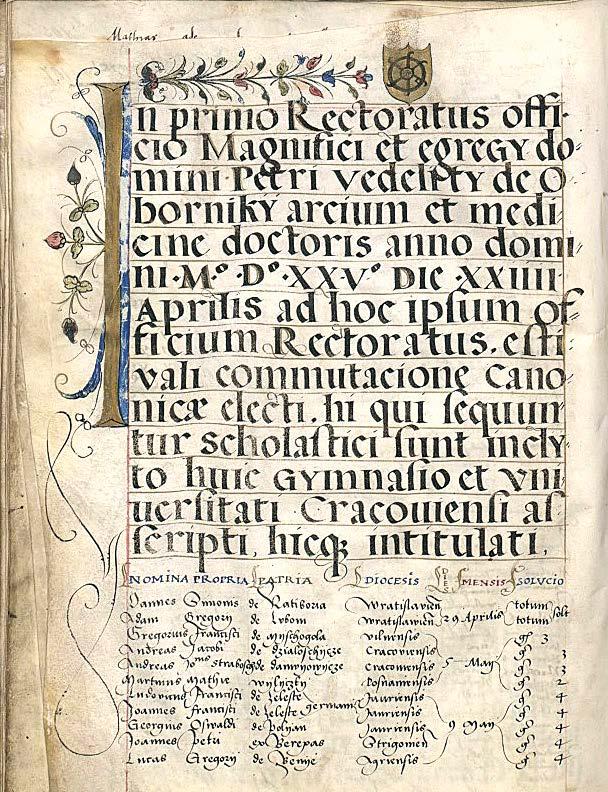 In primo Rectoratus offi-
cio Magnifici et egregy do-
mini Petri vedelyty de O
borniky arcium et medi-
cine doctoris anno domi-
ni·M·° D·° XXV° DIE·XXIIII
Aprilis ad hoc ipsum of-
ficium Rectoratus. esti-
vali commutacione cano-
nicæ electi. hi qui sequun-
tur scholastici sunt incly-
to huic gymnasio et vni-
uersitati Cracouiensi as-
scripti, hicq; intitulati.
NOMINA PROPRIA PATRIA DIOCESIS DIES MENSIS SOLUCIO
Joannes Simonis de Ratiboria Wratislavien totum solt
Adam Gregory de Wratislavien 29 Aprilis totum
Gregorius Francisci de vilnensis gs 3
Andreas Jacobi de Cracoviensis gs 3
Andreas de Cracoviensis 5 May gs 3
Martinus Mathie posnaniensis gs 2
Ludovicus Francisci de Zeleste Jauriensis gs 4
Joannes Francisci de Zeleste germani Jauriensis gs 4
Georgius Osvaldi de Polyan Jauriensis 9 May gs 4
Joannes Petri ex Berepas Strigonien gs 4
Lucas Gregory de Benye Agriensis gs 4